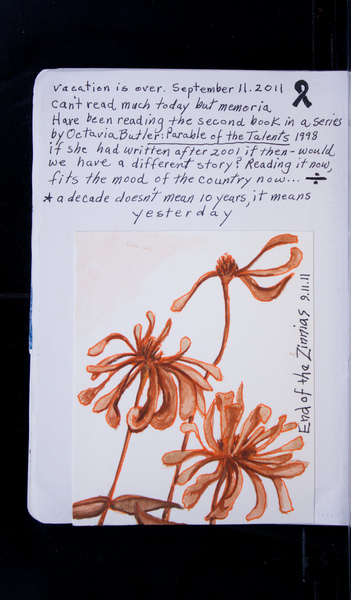 vacation is over. September 11.2011
can't read much today but memoria
Have been reading the second book in a series
by Octavia Butler: Parable of the Talents 1998
if she had written after 2001 if then - would
we have a different story? Reading it now,
fits the mood of the country now... ÷
* a decade doesn't mean 10 years, it means
yesterday
End of the Zinnias 9.11.11